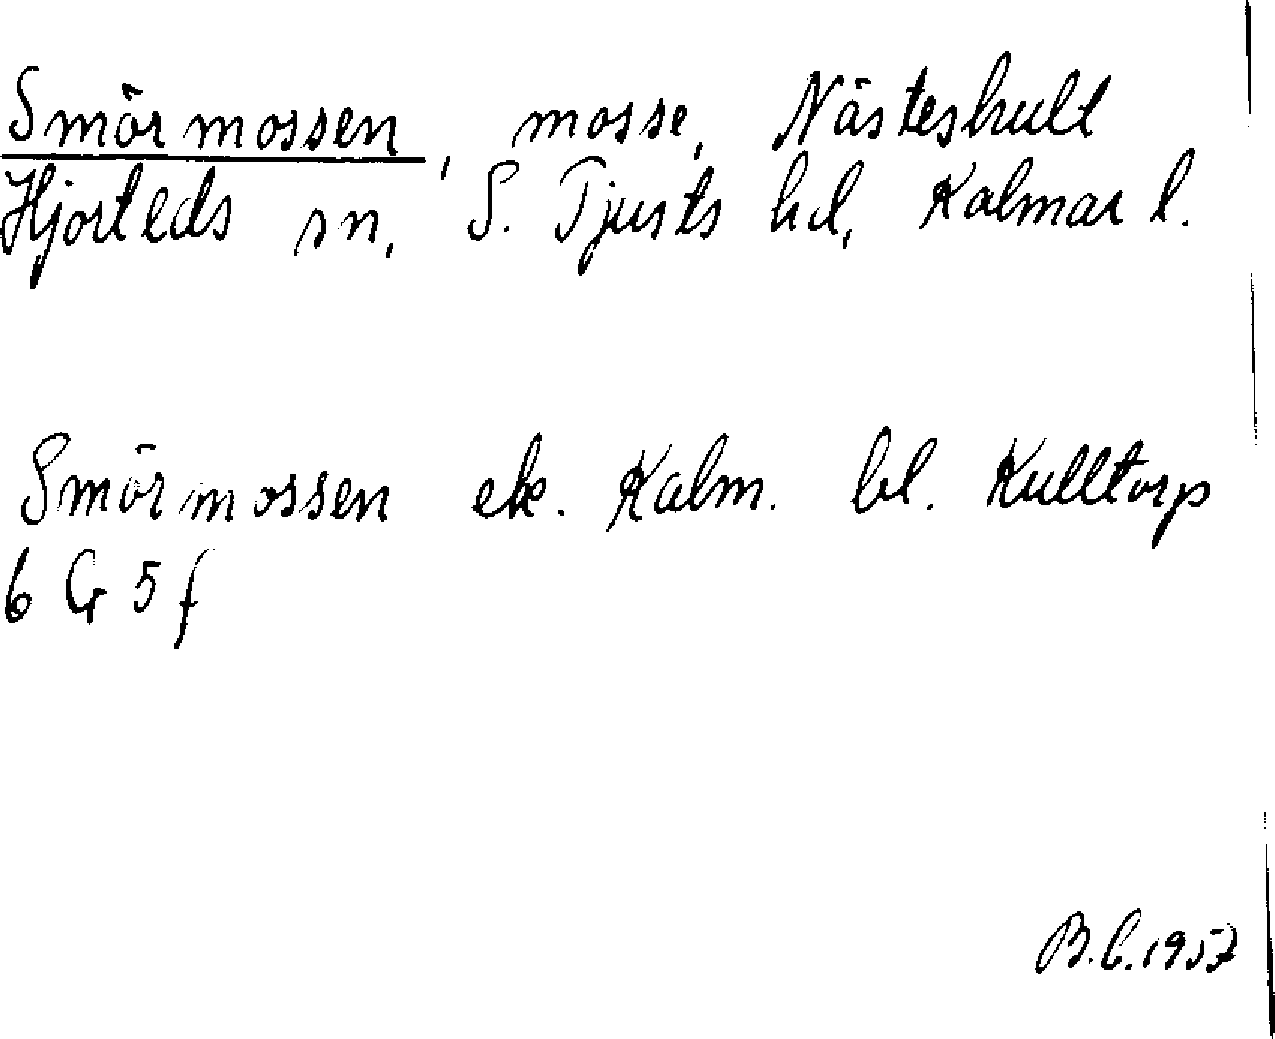 Smörmossen, mosse, Nästeshult
Hjorteds sn, S. Tjusts hd, Kalmar l.
Smörmossen ek. Kalm. bl. Kulltorp
6 G 5 f
B.C.1957